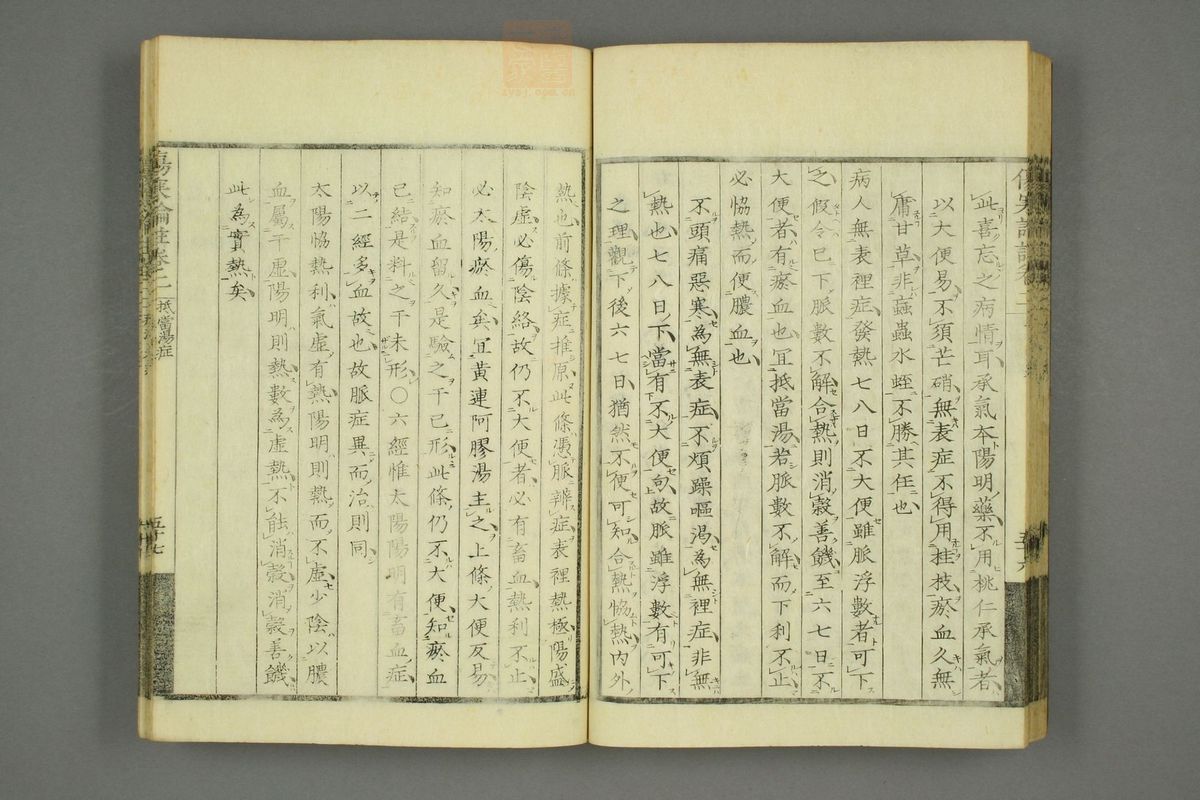 此喜忘之病情耳承氣本陽明藥不用桃仁承氣者
以大便易不須芒硝無表症不得用桂枝瘀血久無
庸甘草非蝱蟲水蛭不勝其任也
病人無表裡症發熱七八日不大便雖脈浮數者可下
之假令已下脈數不解合熱則消穀善饑至六七日不
大便者有瘀血也宜抵當湯若脈數不解而下利不止
必恊熱而便膿血也
不頭痛惡寒為無表症不煩躁嘔渴為無裡症非無
熱也七八日下當有不大便句故脈雖浮數有可下
之理觀下後六七日猶然不便可知合熱恊熱內外
熱也前條據症推原此條憑脈辨症表裡熱極陽盛
陰虛必傷陰絡故仍不大便者必有畜血熱利不止
必太陽瘀血矣宜黃連阿膠湯主之上條大便反易
知瘀血留久是驗之于已形此條仍不大便知瘀血
已結是料之于未形〇六經惟太陽陽明有畜血症
以二經多血故也故脈症異而治則同
太陽恊熱利氣虛有熱陽明則熱而不虛少陰以膿
血屬于虛陽明則熱數為虛熱不能消穀消穀善饑
此為實熱矣
傷寒論註卷二
抵當湯症
五十七